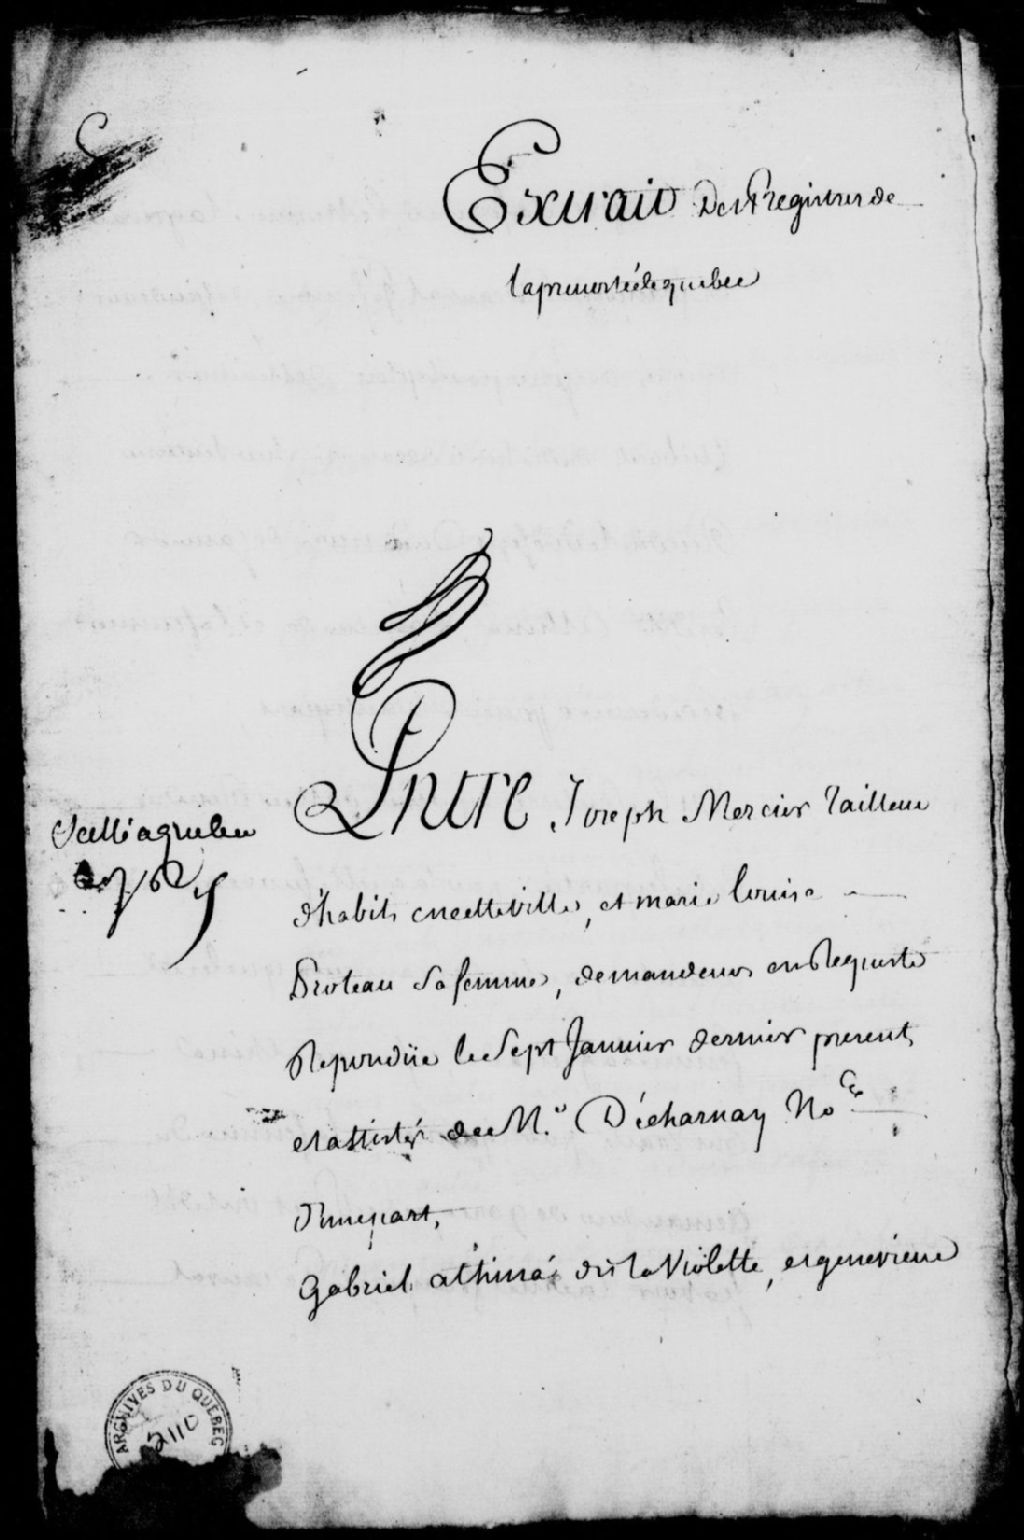 C
Extrait Des Registres de
la prevosté de quebec
Entre Joseph Mercier tailleur
Scellé a quebec
d'habits en cette ville, et marie louise
Proteau sa femme, demandeurs en Requeste
Repondüe le Sept Janvier dernier presents
et assistés de M.e Décharnay No.re
D'une part,
Gabriel athina dit la Violette, et genevieve
ARCHIVES DU QUÉBEC
2110